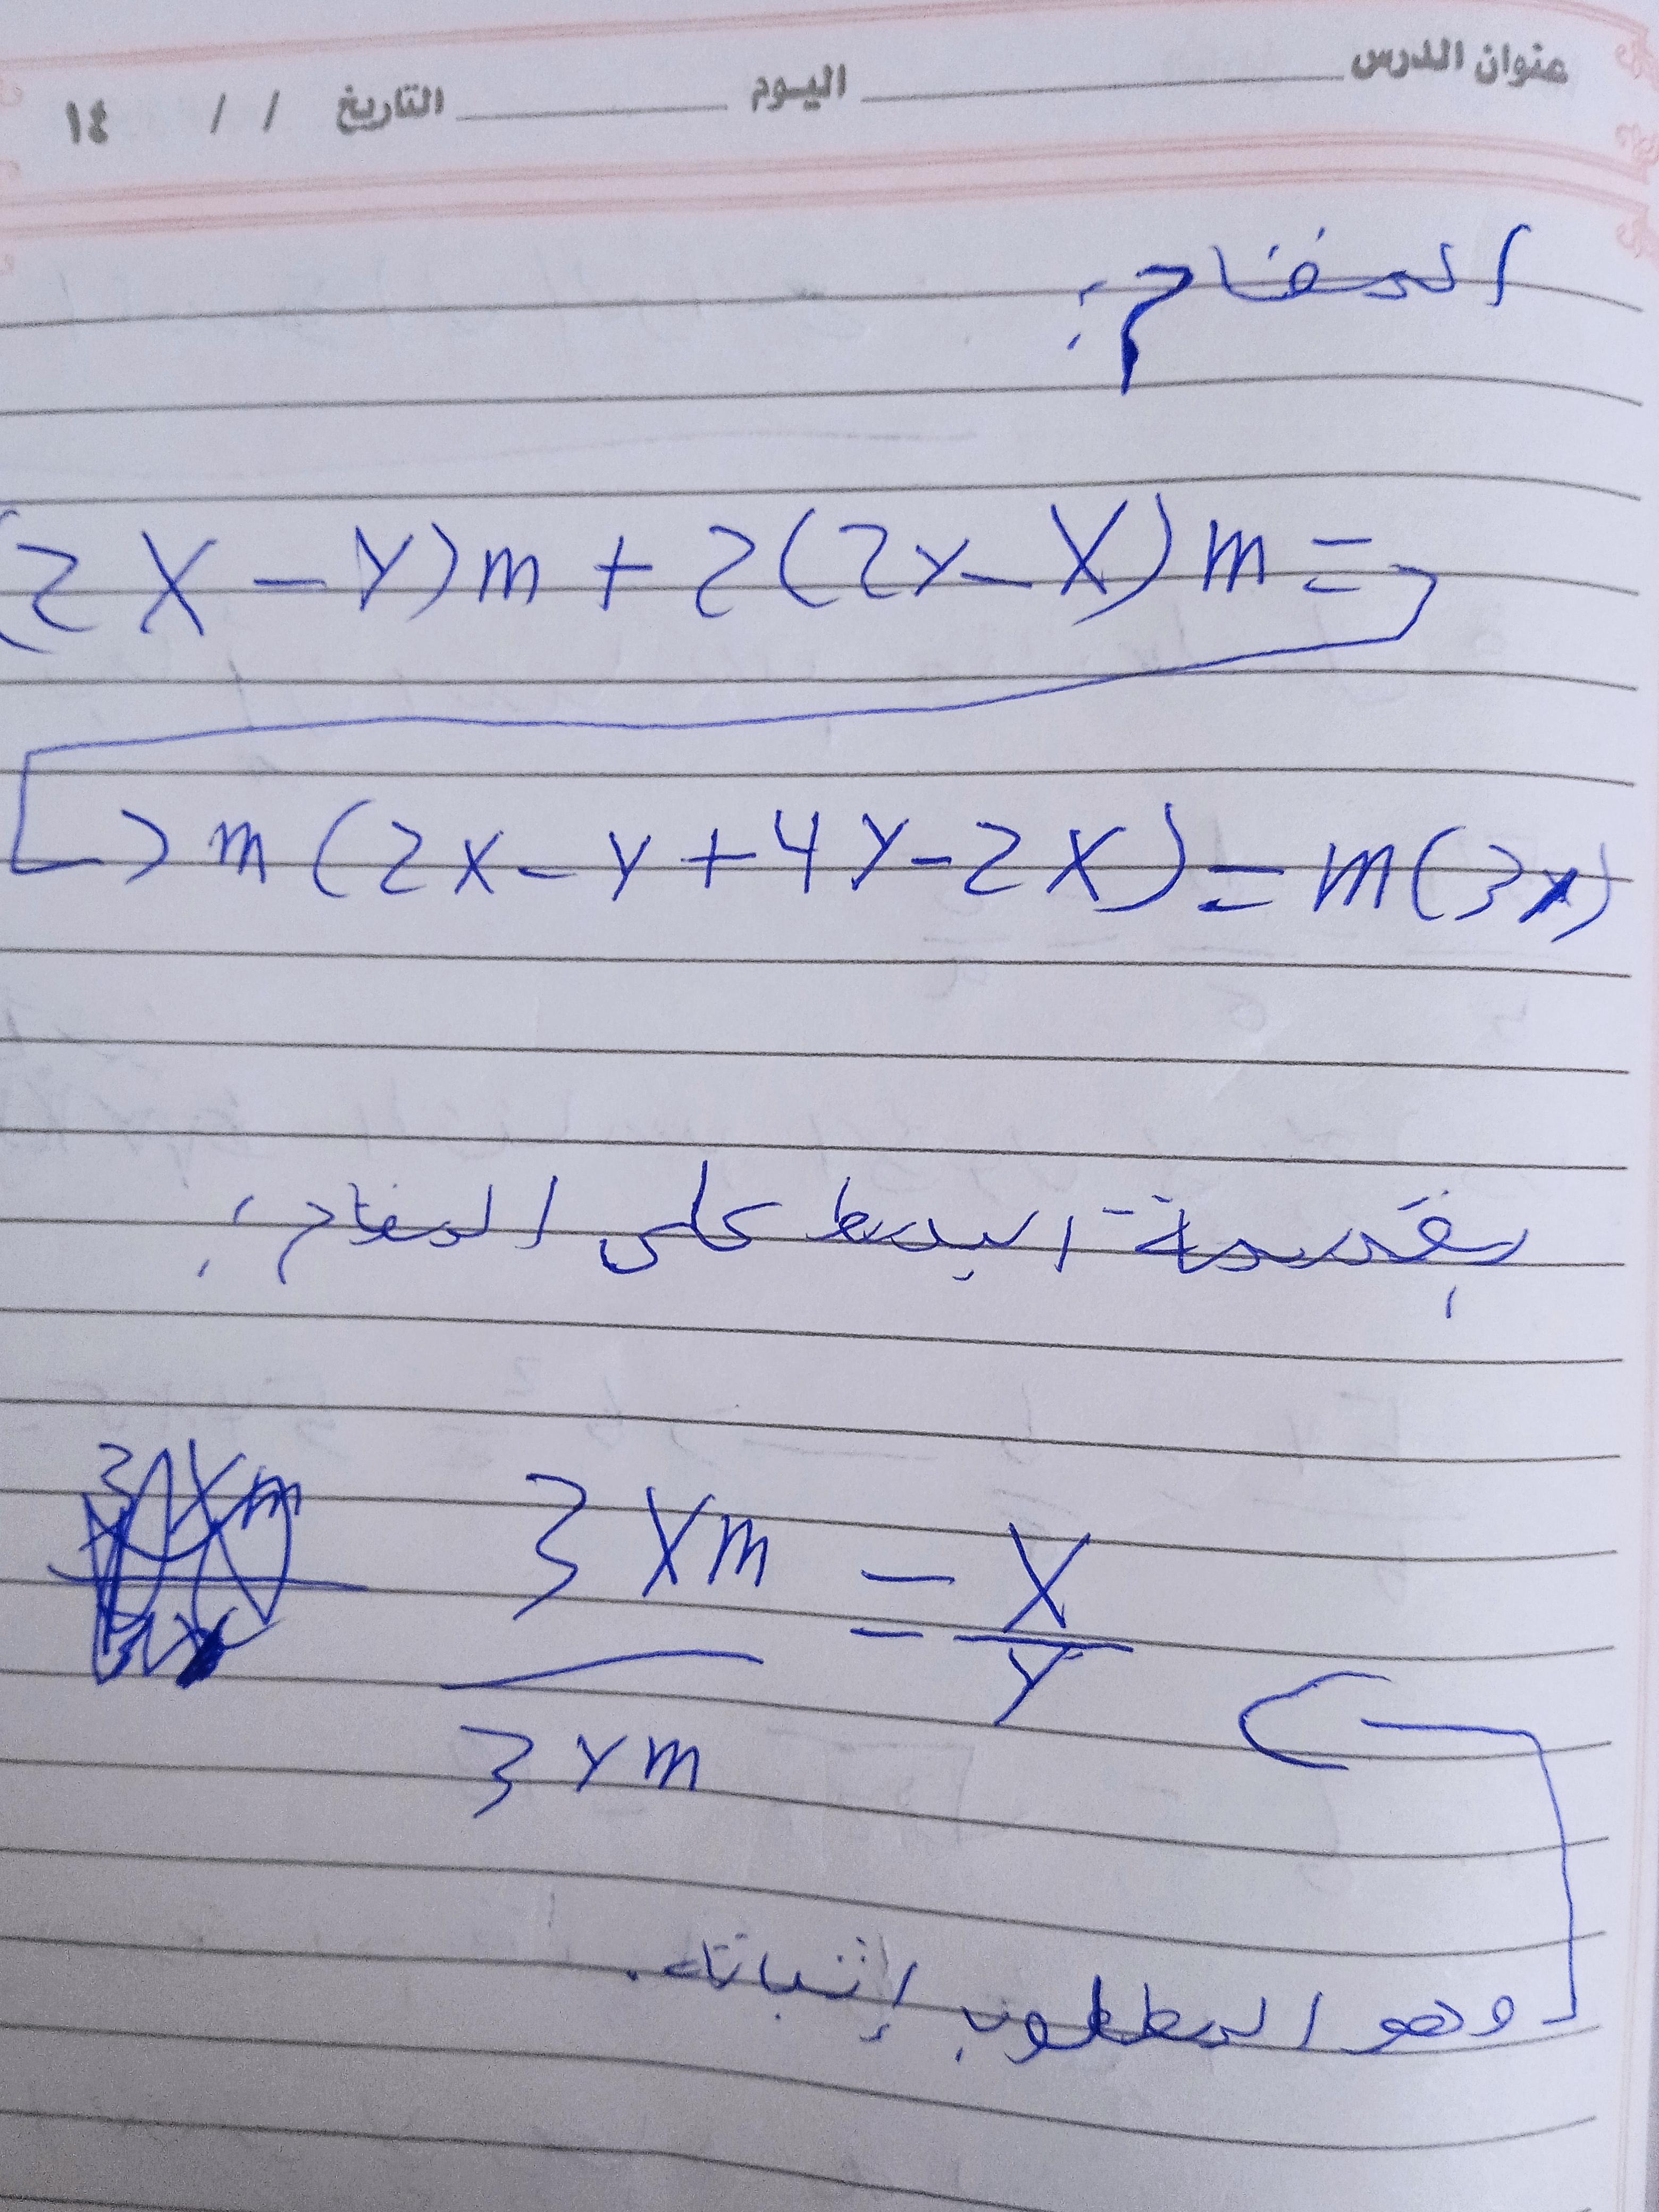 عنوان الدرس ــــــــ اليوم ــــــــ التاريخ / / ١٤
المقام:
(2X - Y)m + 2(2y - X)m =
m(2x - y + 4y - 2x) = m(3y)
بقسمة البسط على المقام:
3Xm/3Ym = X/Y
وهو المطلوب إثباته.